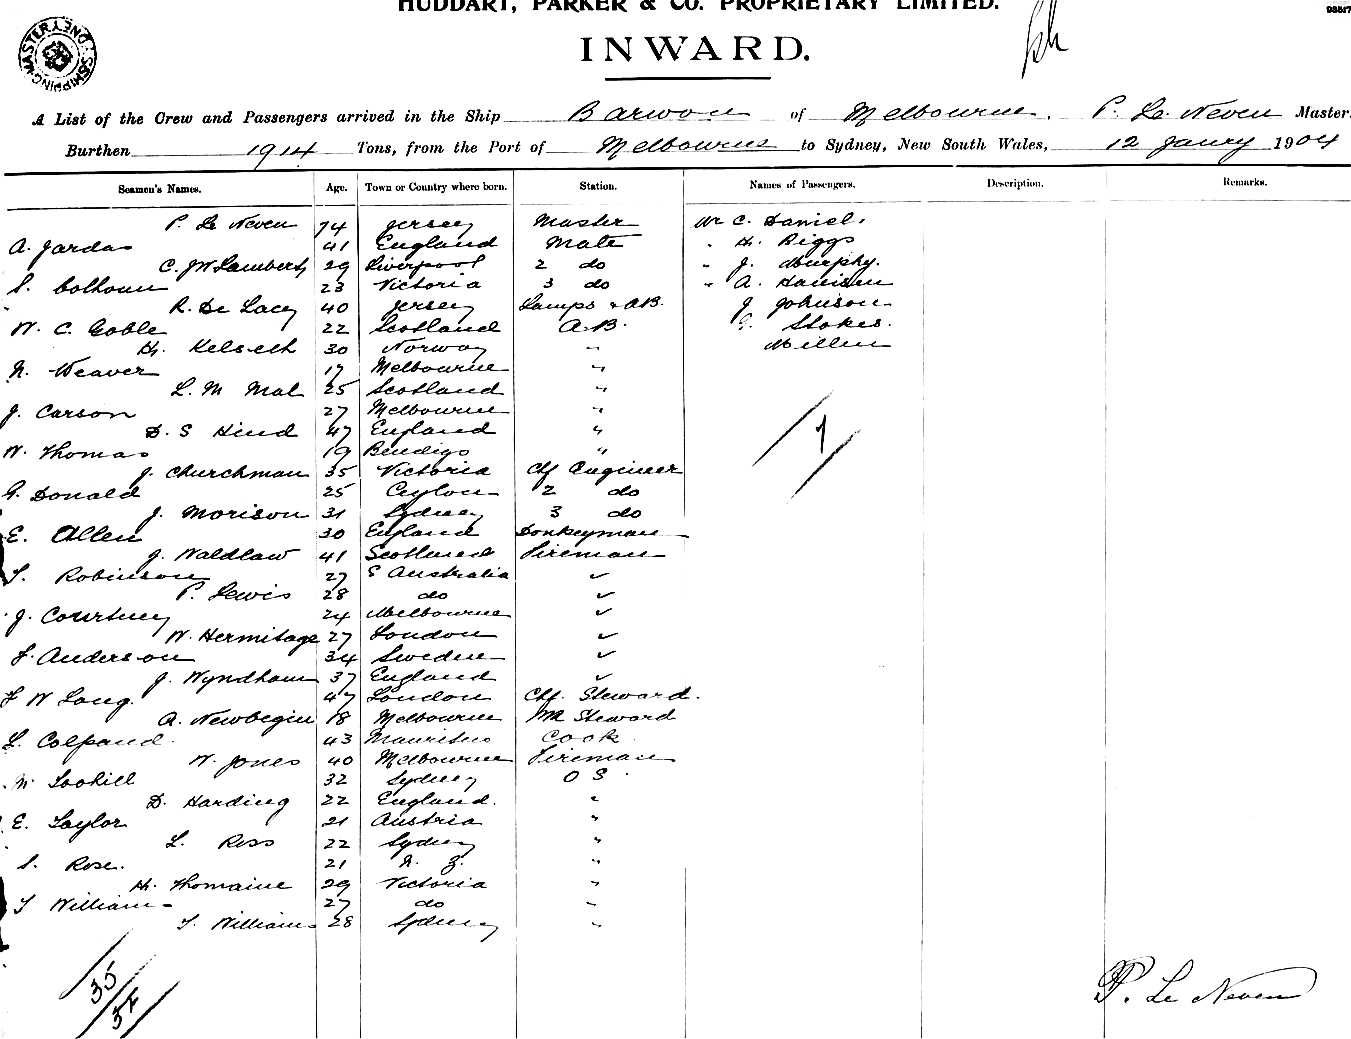 HUDDART, PARKER & CO. PROPRIETARY LIMITED.
INWARD.
A List of the Crew and Passengers arrived in the Ship Barwon of Melbourne, P. Le Neven Master
Burthen 1914 Tons, from the Port of Melbourne to Sydney, New South Wales, 12 Janry 1904
Seamen's Names. Age. Town or Country where born. Station. Names of Passengers. Description. Remarks.
P. Le Neven 74 Jersey Master Mr C. Daniel.
A. Jardas 41 England Mate " H. Biggs
C. J W Lambert 29 Liverpool 2 do " J. Murphy.
S. Colhoun 23 Victoria 3 do " A. Harrison
R. De Lacey 40 Jersey Lamps & AB. J. Johnson
W. C. Goble 22 Scotland A.B. Stokes.
H. Kelseth 30 Norway " Millen
N. Weaver 17 Melbourne "
L. M Mal 25 Scotland "
J. Carson 27 Melbourne "
D. S Hind 47 England "
W. Thomas 19 Bendigo "
J. Churchman 35 Victoria Chf Engineer
G. Donald 25 Ceylon 2 do
J. Morison 31 Sydney 3 do
E. Allen 30 England Donkeyman
J. Waldlaw 41 Scotland Fireman
T. Robinson 27 S Australia "
P. Lewis 28 do "
J. Courtney 24 Melbourne "
W. Hermitage 27 London "
F. Anderson 34 Sweden "
J. Wyndham 37 England "
F W Long. 47 London Chf. Steward.
A. Newbegin 18 Melbourne Steward
L. Colpand. 43 Mauritius Cook
W. Jones 40 Melbourne Fireman
W. Toohill 32 Sydney O S.
D. Harding 22 England. "
E. Taylor 21 Austria "
L. Ross 22 Sydney "
S. Rose. 21 N. Z. "
H. Thomaine 29 Victoria "
T William 27 do "
T. Williams 28 Sydney "
7
35
P. Le Neven